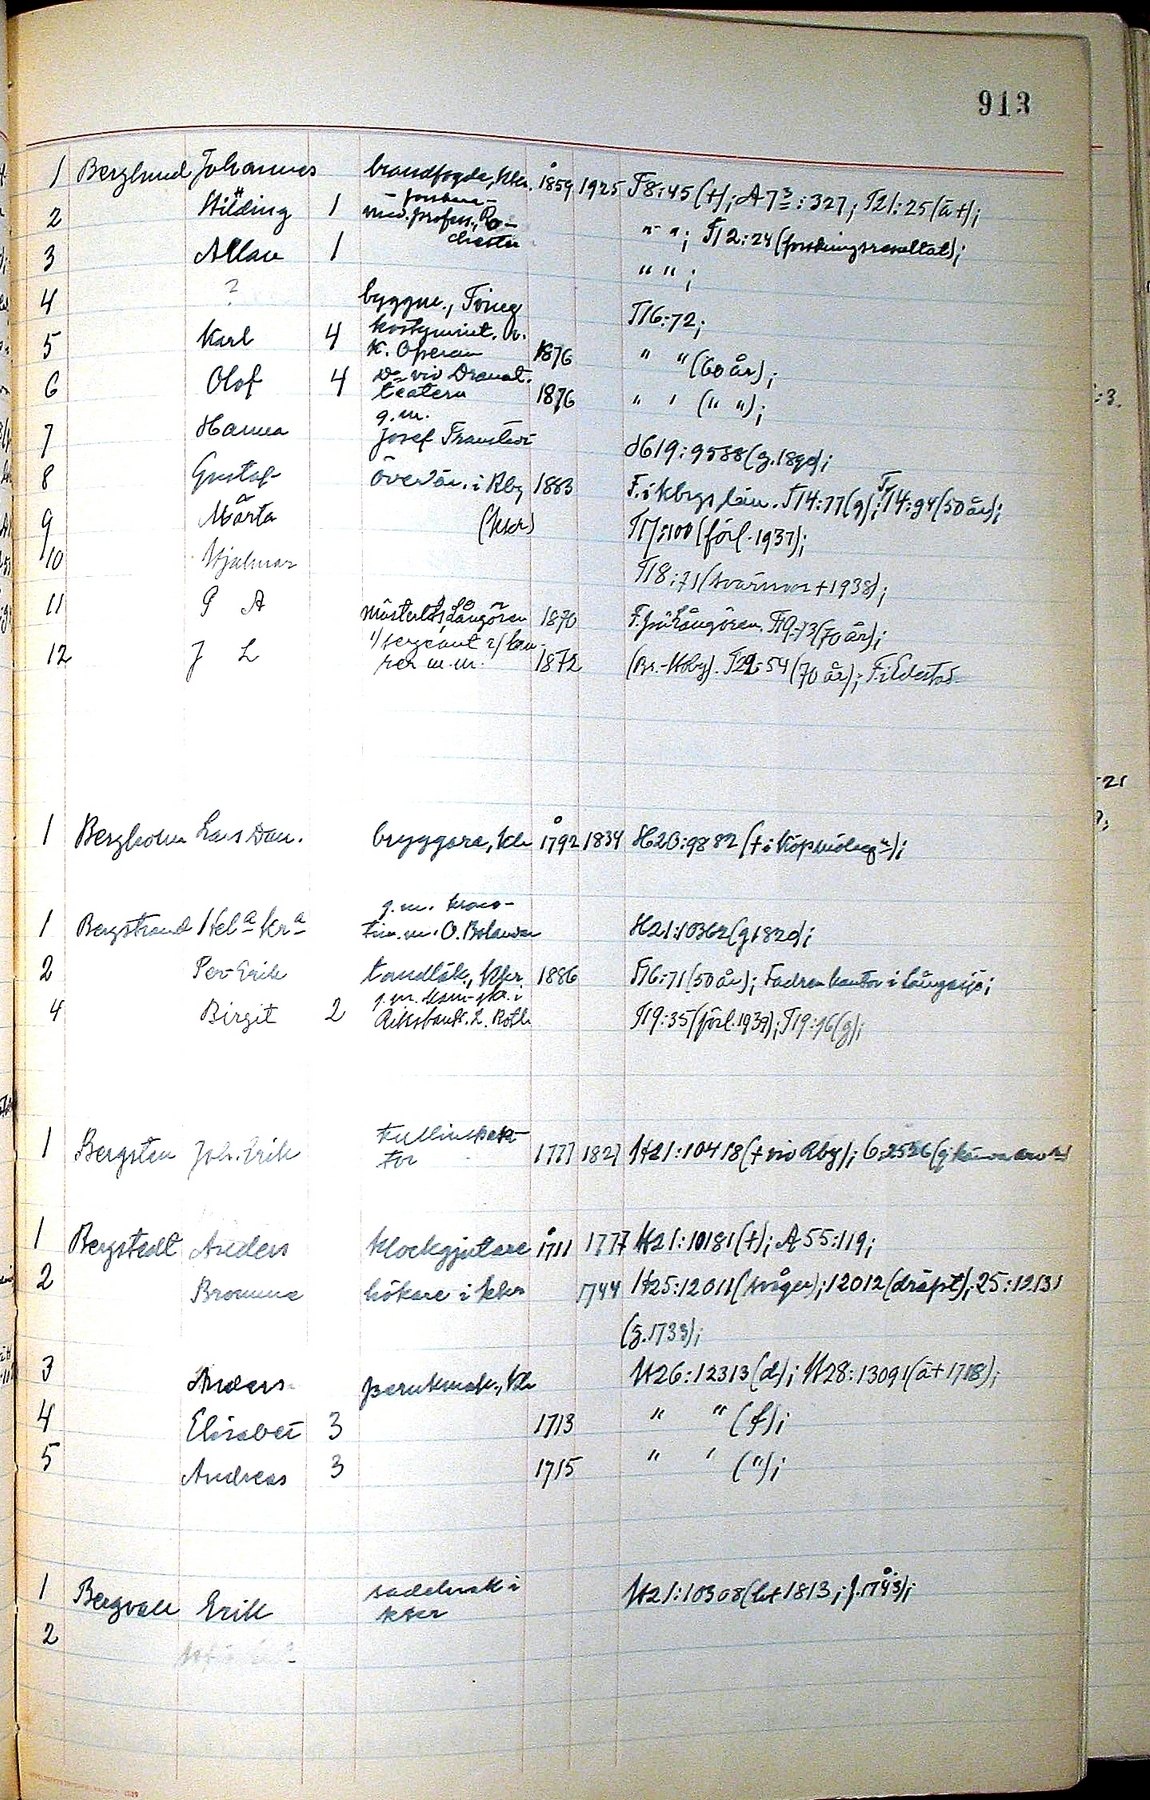 913
1 Berglund Johannes brandfogde, Kkr. 1859 1925 T8:45 (†); A 7 3:327; T21:25 (ä †);
2 Hilding 1 med. profess., Ro-
chester " "; T12:24 (forskningsresultat);
3 Allan 1 " ";
4 ? byggm., Torneg T16:72;
5 Karl 4 kostymint. v.
K. Operan 1876 " " (60 år);
6 Olof 4 D:o vid Dramat.
teatern 1876 " " (" ");
7 Hanna g.m.
Josef 8619:9588 (g. 1890);
8 Gustaf i Rby 1883 F. i Kbrgs län. T14:77 (g); T14:94 (50 år);
9 Märta (Kkr) T17:100 (förl. 1937);
10 Hjalmar T18:71 (svärmor † 1938);
11 P A Långören 1870 F. på Långören. T19:73 (70 år);
12 J L 1/ sergeant 2/ kam-
rer m.m. 1872 T22:54 (70 år); F. i Edestad
1 Bergholm Lars Dan. bryggare, Kkr 1792 1834 H20:9882 († i Köpmölleg);
1 Bergstrand Hel:a Kr:a g.m. krono-
O. Bolander H21:10362 (g 1820);
2 Per-Erik tandläk., Kkr. 1886 T16:71 (50 år); Fadren kantor i Långasjö;
4 Birgit 2 g.m. i
Riksbank. L. Roth T19:35 (förl. 1939); T19:76 (g);
1 Bergsten Joh. Erik tullinspek-
tor 1777 1827 H21:10418 († vid Rby); 6:2526
1 Bergstedt Anders klockgjutare 1711 1777 H21:10181 (†); A 55:119;
2 Bromme hökare i Kkr 1744 H25:12011 (svåger); 12012 (dräpt); 25:12131
(g. 1733);
3 Anders perukmak., Kkr H26:12313 (d); H28:13091 (ä † 1718);
4 Elisabet 3 1713 " " (f);
5 Andreas 3 1715 " " (");
1 Bergvall Erik sadelmak i
Kkr H21:10308 (h † 1813; f. 1743);
2